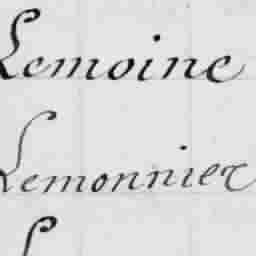 Lemoine
Lemonnier